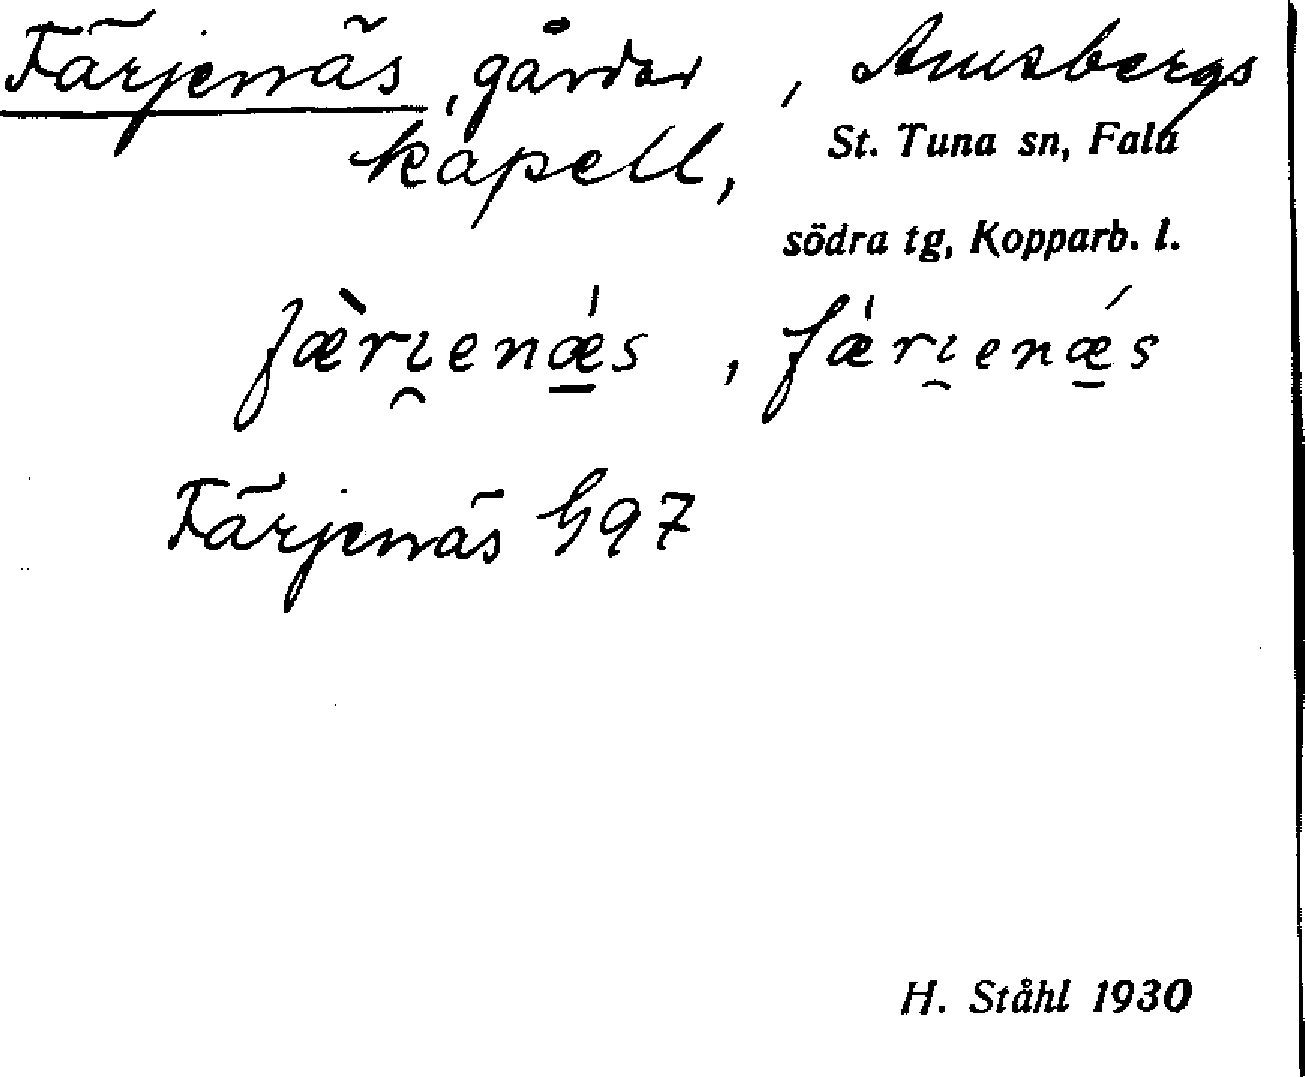 Färjenäs, gårdar, Amsbergs
kapell, St. Tuna sn, Falu
södra tg, Kopparb. l.
fæ̀rı̯enǽ̠s, fǽrı̯enǽ̠s
Färjenäs G97
H. Ståhl 1930